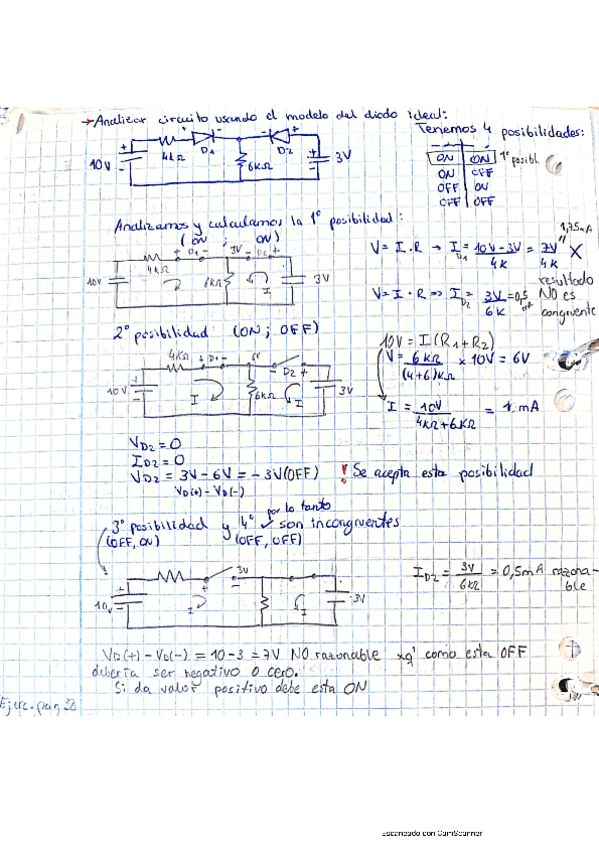 →Analizar circuito usando el modelo del diodo ideal:
Tenemos 4 posibilidades:
10V 4kΩ + D1 - 6kΩ - D2 + 3V
ON | ON 1º posibl.
ON | OFF
OFF | ON
OFF | OFF
Analizamos y calculamos la 1º posibilidad:
(ON ; ON)
10V 4kΩ + D1 - 6kΩ - D2 + I 3V
V = I · R → I D1 = 10V - 3V / 4K = 7V / 4K X
1,75mA
V = I · R => I D2 = 3V / 6K = 0,5 mA
resultado
NO es
congruente
2º posibilidad (ON; OFF)
10V 4kΩ + D1 - I 6kΩ - D2 + I 3V
10V = I (R1 + R2)
V = 6kΩ / (4+6)kΩ x 10V = 6V
I = 10V / 4kΩ + 6kΩ = 1 mA
VD2 = 0
ID2 = 0
VD2 = 3V - 6V = -3V (OFF) ! Se acepta esta posibilidad
VD(+) - VD(-)
por lo tanto
3º posibilidad y 4º son incongruentes
(OFF, ON) (OFF, OFF)
10V I 3V I 3V
ID2 = 3V / 6kΩ = 0,5mA razona-
ble
VD(+) - VD(-) = 10 - 3 = 7V NO razonable xq' como esta OFF
deberia ser negativo o cero.
Si da valor positivo debe esta ON
Ejerc. pag 28
Escaneado con CamScanner